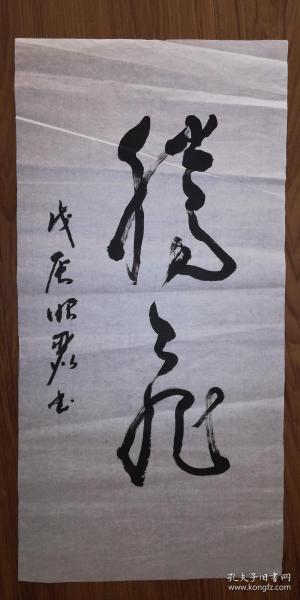 騰飛
戊辰 书
孔夫子旧书网
www.kongfz.com